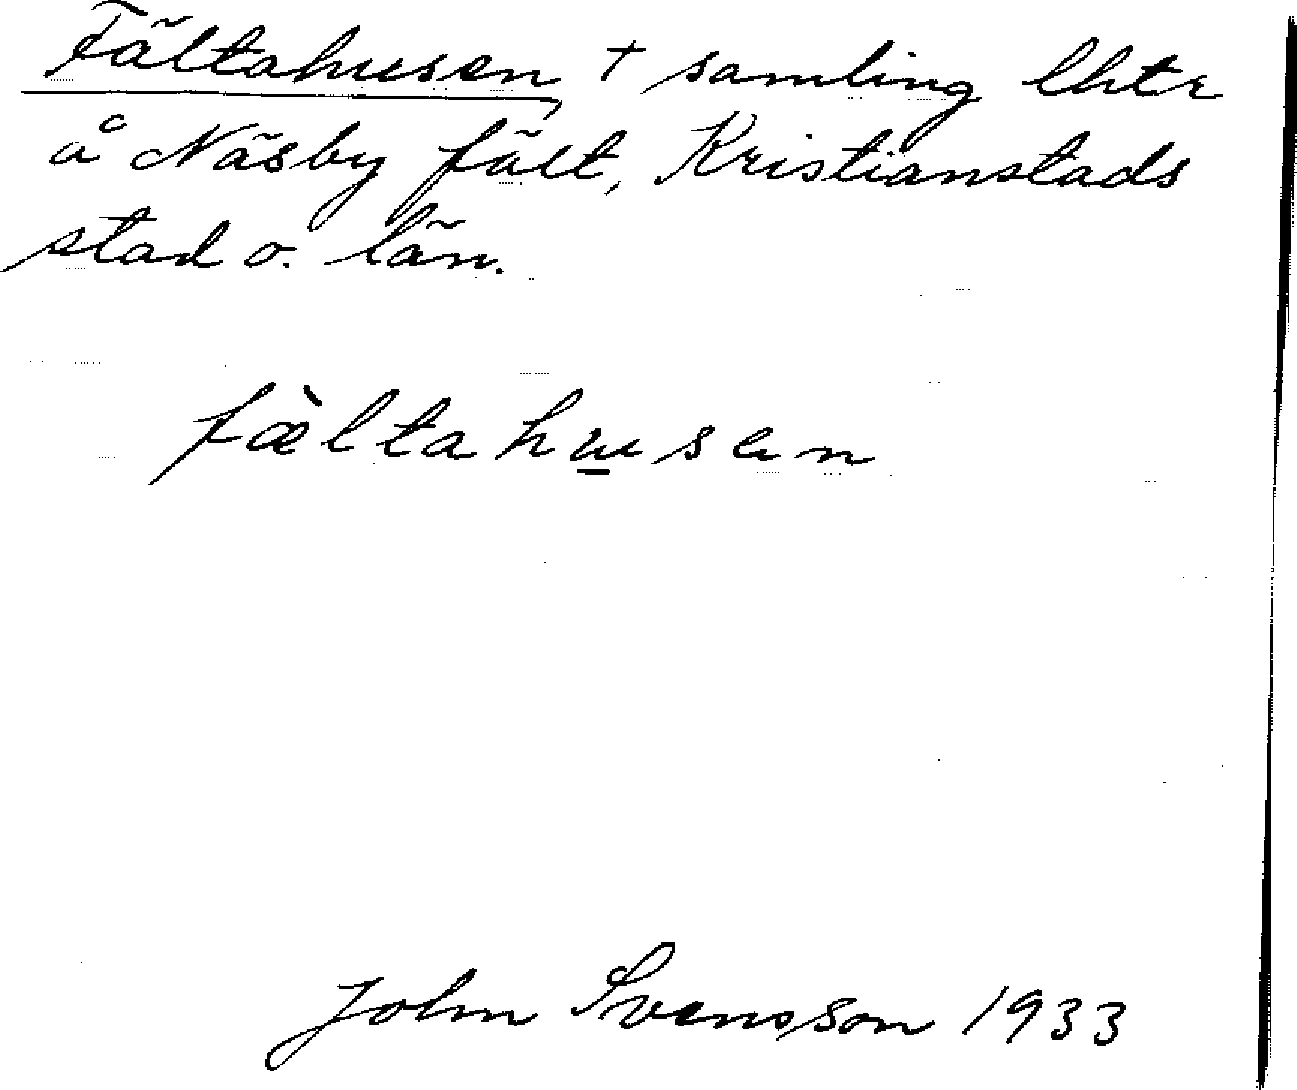 Fältahusen, + samling lhtr
å Näsby fält, Kristianstads
stad o. län.
fæ̀ltahu̲sen
John Svensson 1933